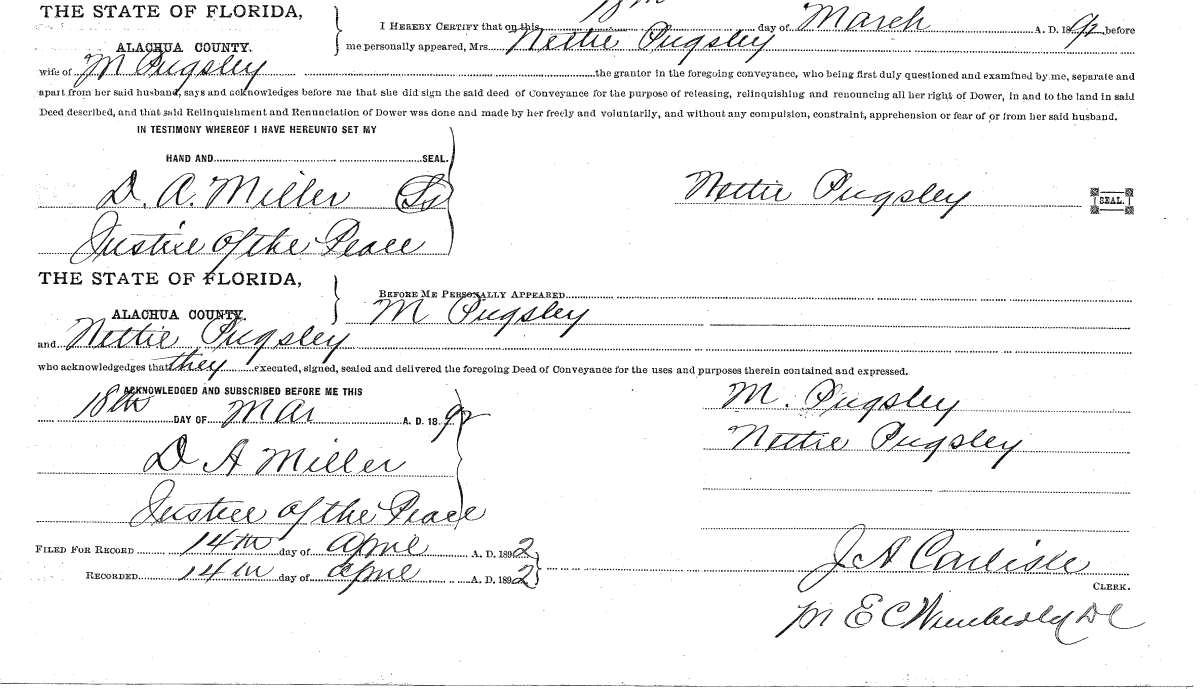 THE STATE OF FLORIDA,
ALACHUA COUNTY.
I HEREBY CERTIFY that on this 18th day of March A. D. 1892 before
me personally appeared, Mrs. Nettie Pugsley
wife of M Pugsley the grantor in the foregoing conveyance, who being first duly questioned and examined by me, separate and
apart from her said husband, says and acknowledges before me that she did sign the said deed of Conveyance for the purpose of releasing, relinquishing and renouncing all her right of Dower, in and to the land in said
Deed described, and that said Relinquishment and Renunciation of Dower was done and made by her freely and voluntarily, and without any compulsion, constraint, apprehension or fear of or from her said husband.
IN TESTIMONY WHEREOF I HAVE HEREUNTO SET MY
HAND AND SEAL.
D. A. Miller
Justice of the Peace
Nettie Pugsley SEAL.
THE STATE OF FLORIDA,
ALACHUA COUNTY.
BEFORE ME PERSONALLY APPEARED
M Pugsley
and Nettie Pugsley
who acknowledgedges that they executed, signed, sealed and delivered the foregoing Deed of Conveyance for the uses and purposes therein contained and expressed.
ACKNOWLEDGED AND SUBSCRIBED BEFORE ME THIS
18th DAY OF Mar A. D. 1892
D A Miller
Justice of the Peace
M. Pugsley
Nettie Pugsley
FILED FOR RECORD 14th day of April A. D. 1892
RECORDED 14th day of April A. D. 1892
J A Carlisle
CLERK.
E C Wimberly D C